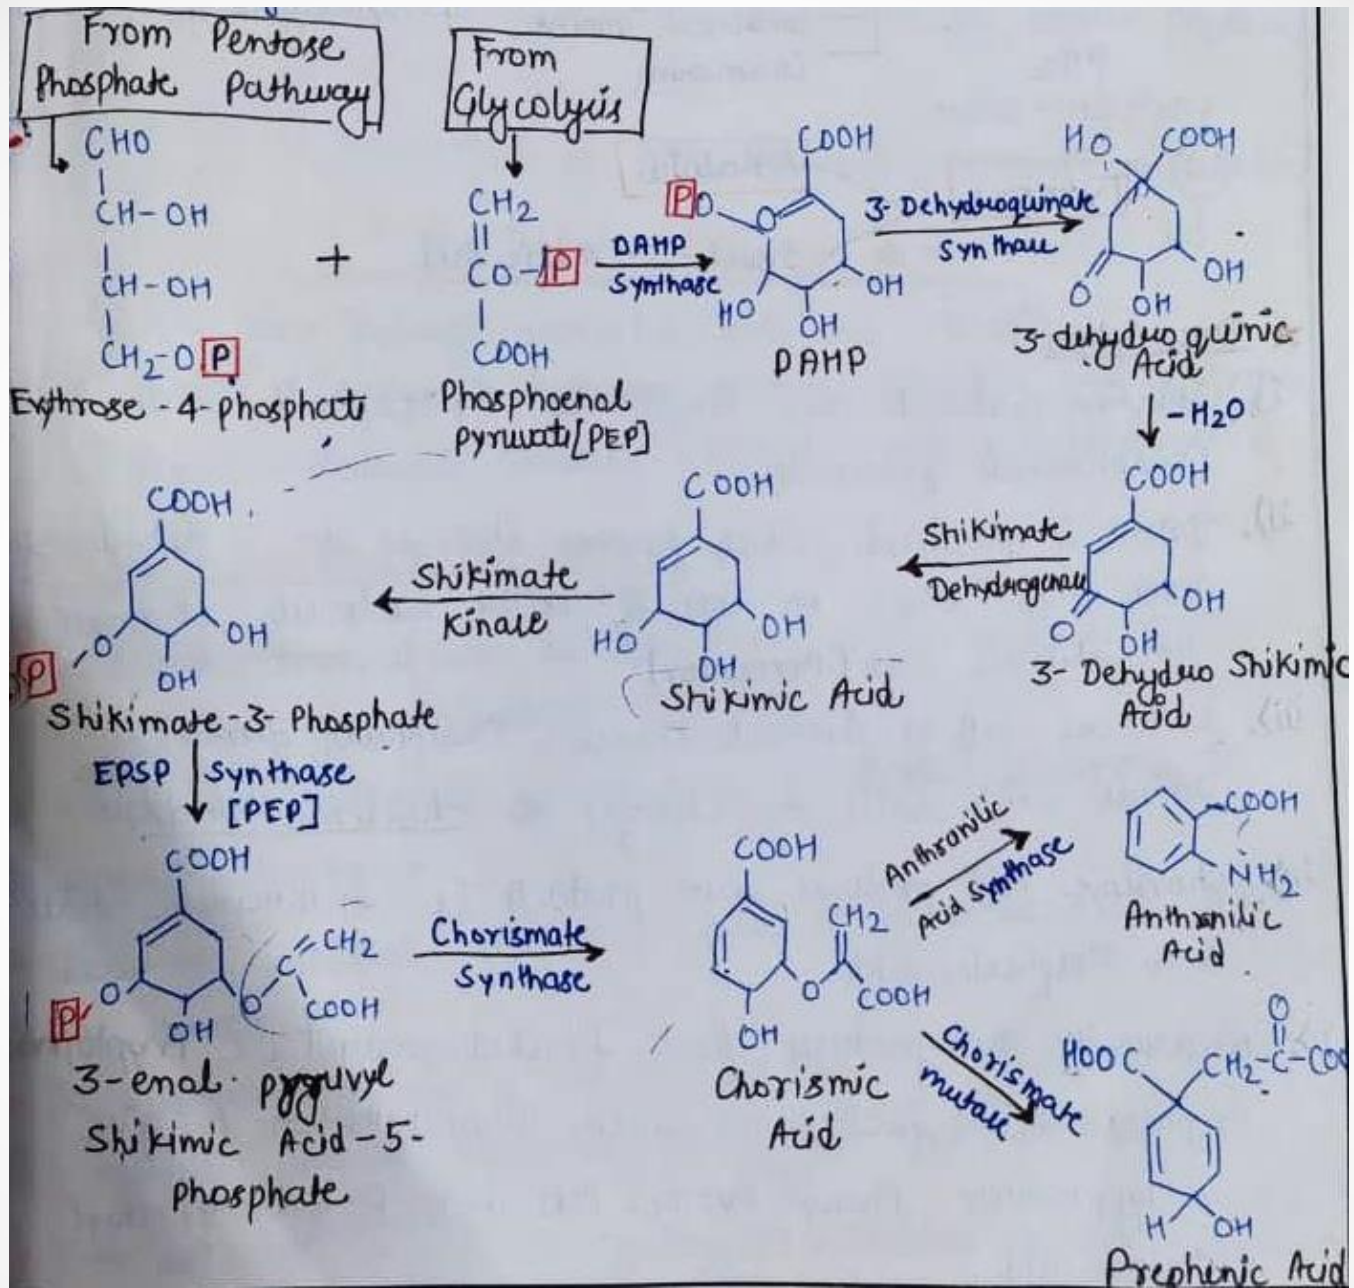 From Pentose
Phosphate Pathway
From
Glycolysis
CHO
CH-OH
CH-OH
CH2-O P
Erythrose-4-phosphate
+
CH2
CO-P
COOH
Phosphoenol
pyruvate[PEP]
DAHP
Synthase
COOH
PO
O
HO
OH
OH
DAHP
3-Dehydroquinate
Synthase
HO
COOH
O
OH
OH
3-dehydro quinic
Acid
-H2O
COOH
O
OH
OH
3-Dehydro Shikimic
Acid
Shikimate
Dehydrogenase
COOH
HO
OH
OH
Shikimic Acid
Shikimate
Kinase
COOH
P
O
OH
OH
Shikimate-3-Phosphate
EPSP Synthase
[PEP]
COOH
P
O
OH
O
C=CH2
COOH
3-enol pyruvyl
Shikimic Acid-5-
phosphate
Chorismate
Synthase
COOH
CH2
O
COOH
OH
Chorismic
Acid
Anthranilic
Acid Synthase
COOH
NH2
Anthranilic
Acid
Chorismate
mutase
HOOC
O
CH2-C-COO
H
OH
Prephenic Acid